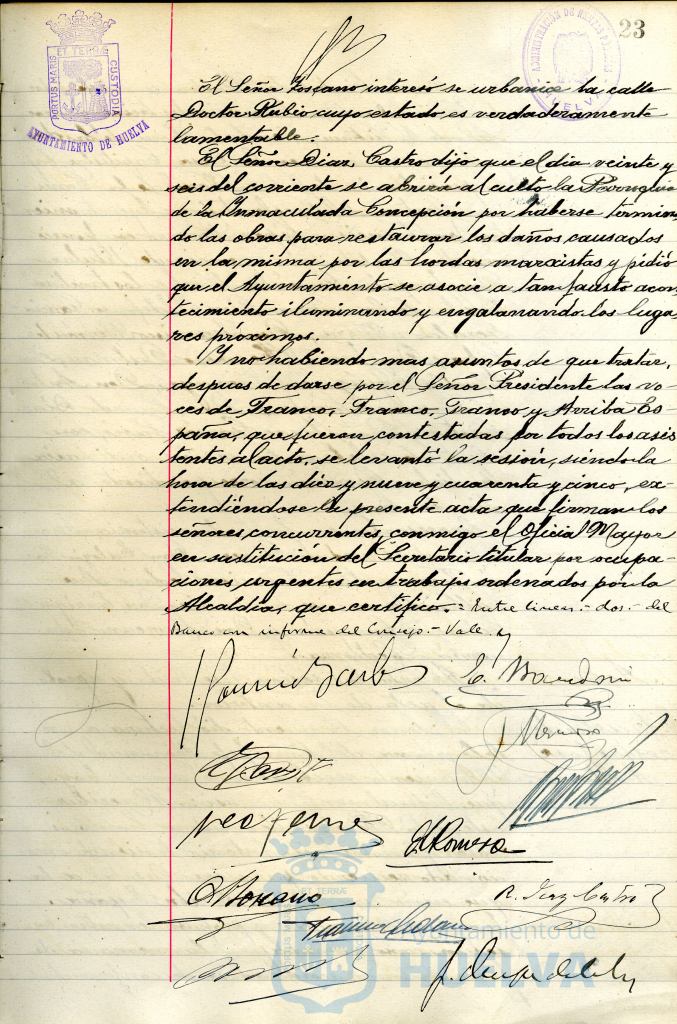 23
PORTUS MARIS ET TERRÆ CUSTODIA
AYUNTAMIENTO DE HUELVA
ADMINISTRACIÓN DE RENTAS
HUELVA
El Señor Toscano interesó se urbanice la calle
Doctor Rubio cuyo estado es verdaderamente
lamentable.
El Señor Diaz Castro dijo que el dia veinte y
seis del corriente se abrirá al culto la Parroquia
de la Inmaculada Concepción por haberse termina
do las obras para restaurar los daños causados
en la misma por las hordas marxistas y pidió
que el Ayuntamiento se asocie a tan fausto acon
tecimiento iluminando y engalanando los luga
res próximos.
Y no habiendo mas asuntos de que tratar,
despues de darse por el Señor Presidente las vo
ces de Franco, Franco, Franco y Arriba Es
paña, que fueron contestadas por todos los asis
tentes al acto, se levantó la sesión, siendo la
hora de las diez y nueve y cuarenta y cinco, ex
tendiéndose la presente acta que firman los
señores concurrentes, conmigo el Oficial Mayor
en sustitución del Secretario titular por ocupa
ciones urgentes en trabajos ordenados por la
Alcaldia, que certifico.= Entre lineas.- dos.- del
Banco con informe del Consejo.- Vale.
E.
R. Diaz Castro
Ayuntamiento de
HUELVA